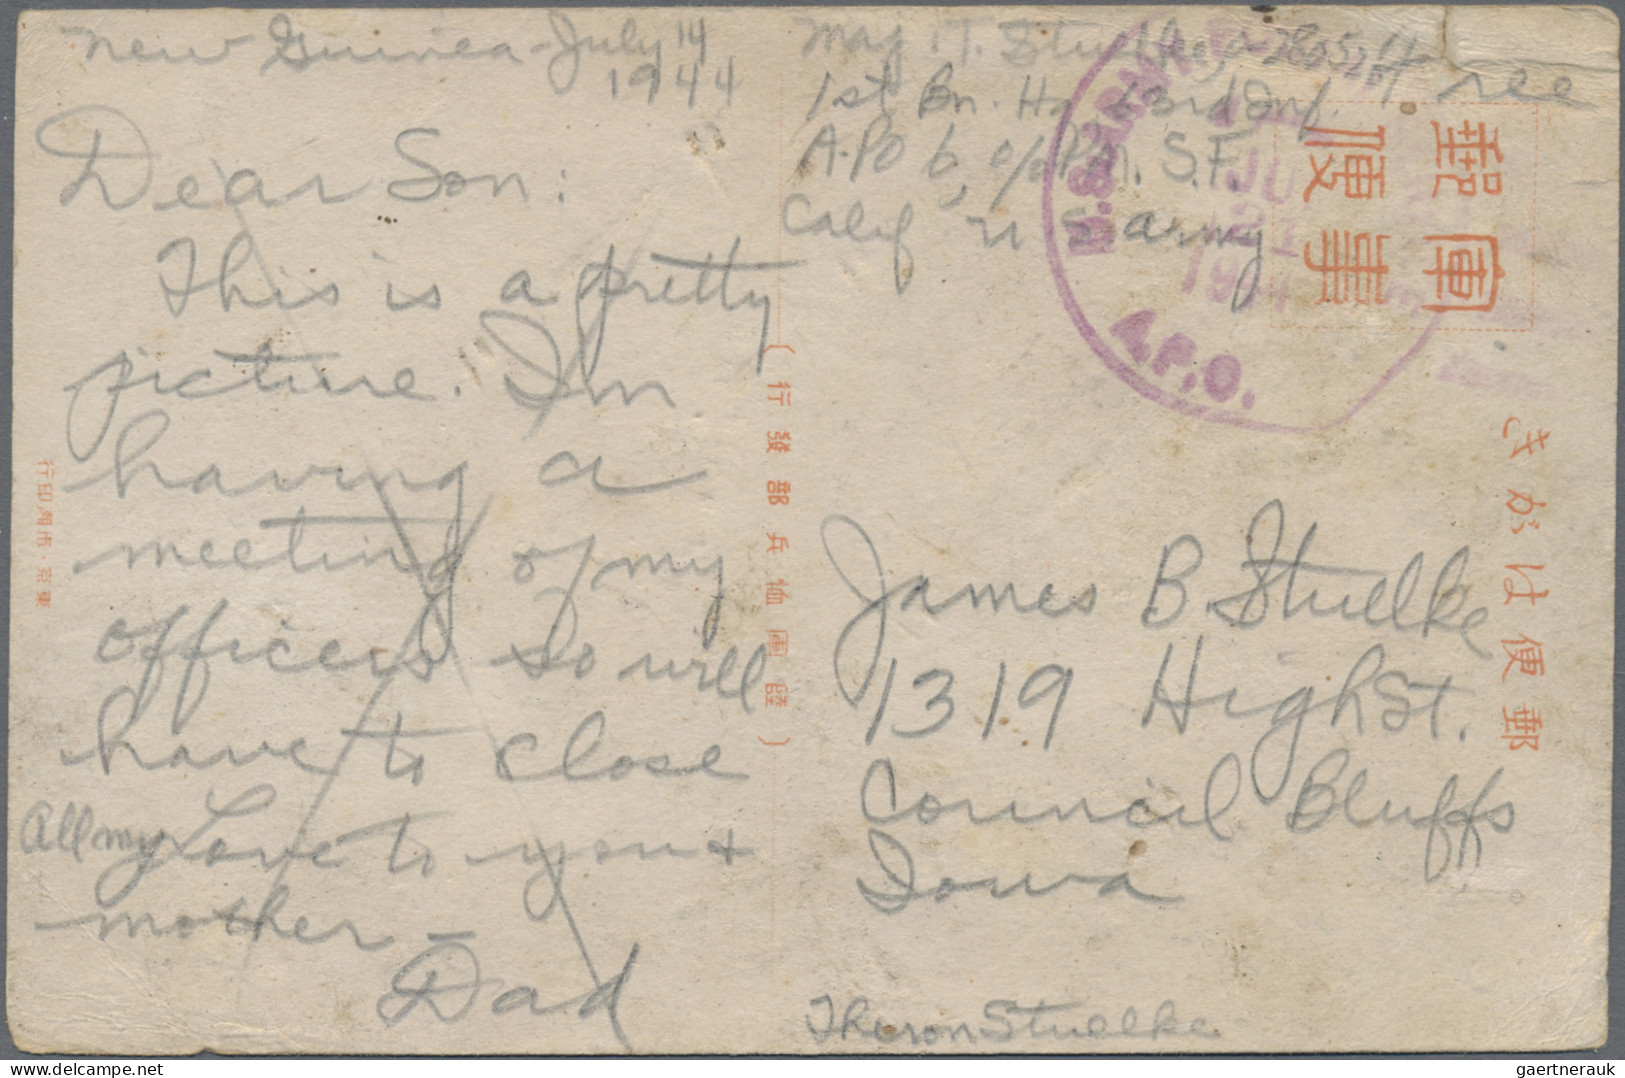 New Guinea - July 14
1944
Dear Son:
This is a pretty
picture. Im
having a
meeting of my
officers so will
have to close
All my Love to you +
mother -
Dad
Maj T. Stuelke
1st Bn. Hq 63rd Inf.
A.PO 6, c/o P.M. S.F.
Calif U S army
Free
U.S. ARMY
JUL
21
194
A.P.O.
軍事
郵便
郵便はがき
(陸軍恤兵部發行)
東京・市
印行
James B. Stuelke
1319 High St.
Council Bluffs
Iowa
Theron Stuelke
gaertnerauk